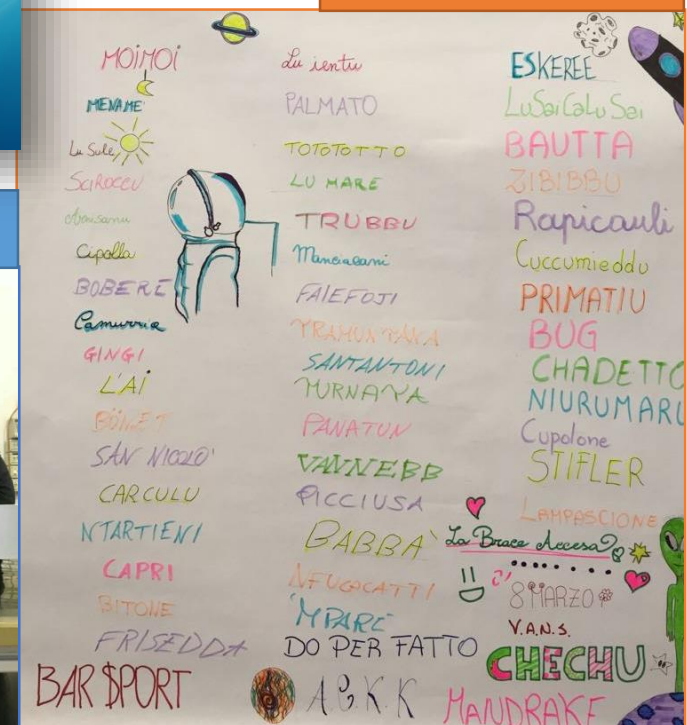 MOIMOI
MENAME'
Lu Sule
SCIROCCU
Cipolla
BOBERE
Camurria
GINGI
L'AI
SAN NICOLO'
CARCULU
NTARTIENI
CAPRI
BITONE
FRISEDDA
BAR $PORT
Lu ientu
PALMATO
TOTOTOTTO
LU MARE
TRUBBU
Manciacani
FAIEFOJI
TRAMUNTANA
SANTANTONI
PANATUN
VANNEBB
PICCIUSA
BABBA'
NFUGACATTI
'MPARE
DO PER FATTO
A.G.K.K
ESKEREE
LuSaiCaLuSai
BAUTTA
ZIBIBBU
Rapicauli
Cuccumieddu
PRIMATIU
BUG
CHADETTO
NIURUMARU
Cupolone
STIFLER
LAMPASCIONE
La Brace Accesa
8 MARZO
V.A.N.S.
CHECHU
MANDRAKE